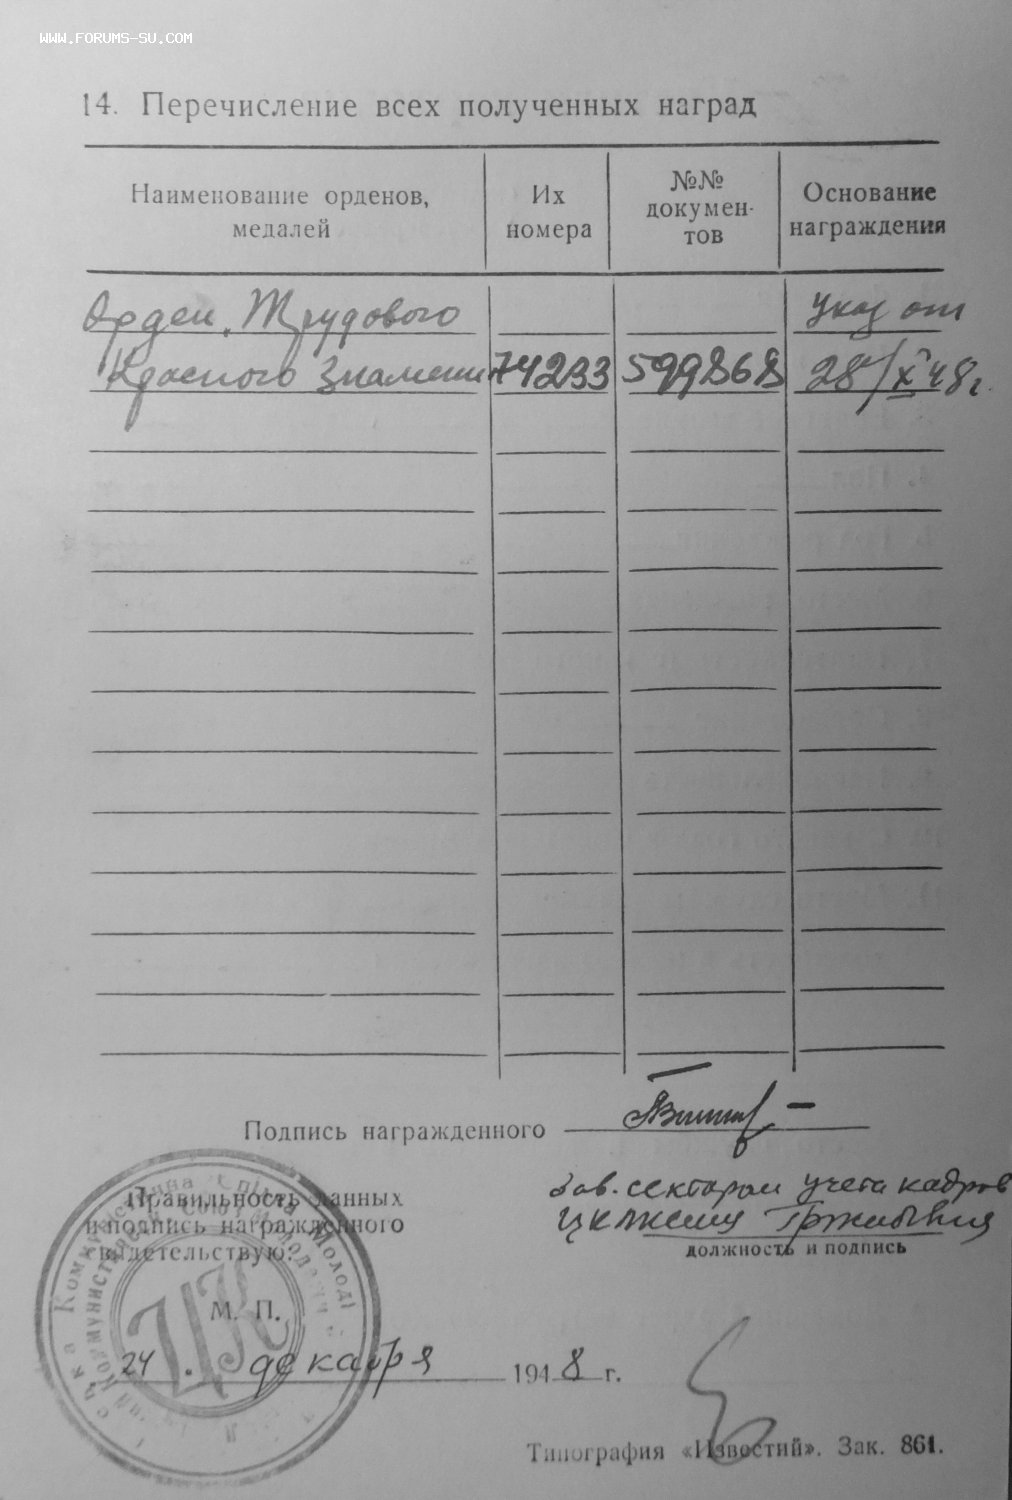 WWW.FORUMS-SU.COM
14. Перечисление всех полученных наград
Наименование орденов,
медалей
Их
номера
№№
докумен-
тов
Основание
награждения
Орден Трудового
Указ от
Красного Знамени 74233 599868 28/X 48 г.
Подпись награжденного
Правильность данных
и подпись награжденного
свидетельствую:
Зав. сектором учета кадров
должность и подпись
ЦК
М. П.
24 декабря 1948 г.
Типография «Известий». Зак. 861.